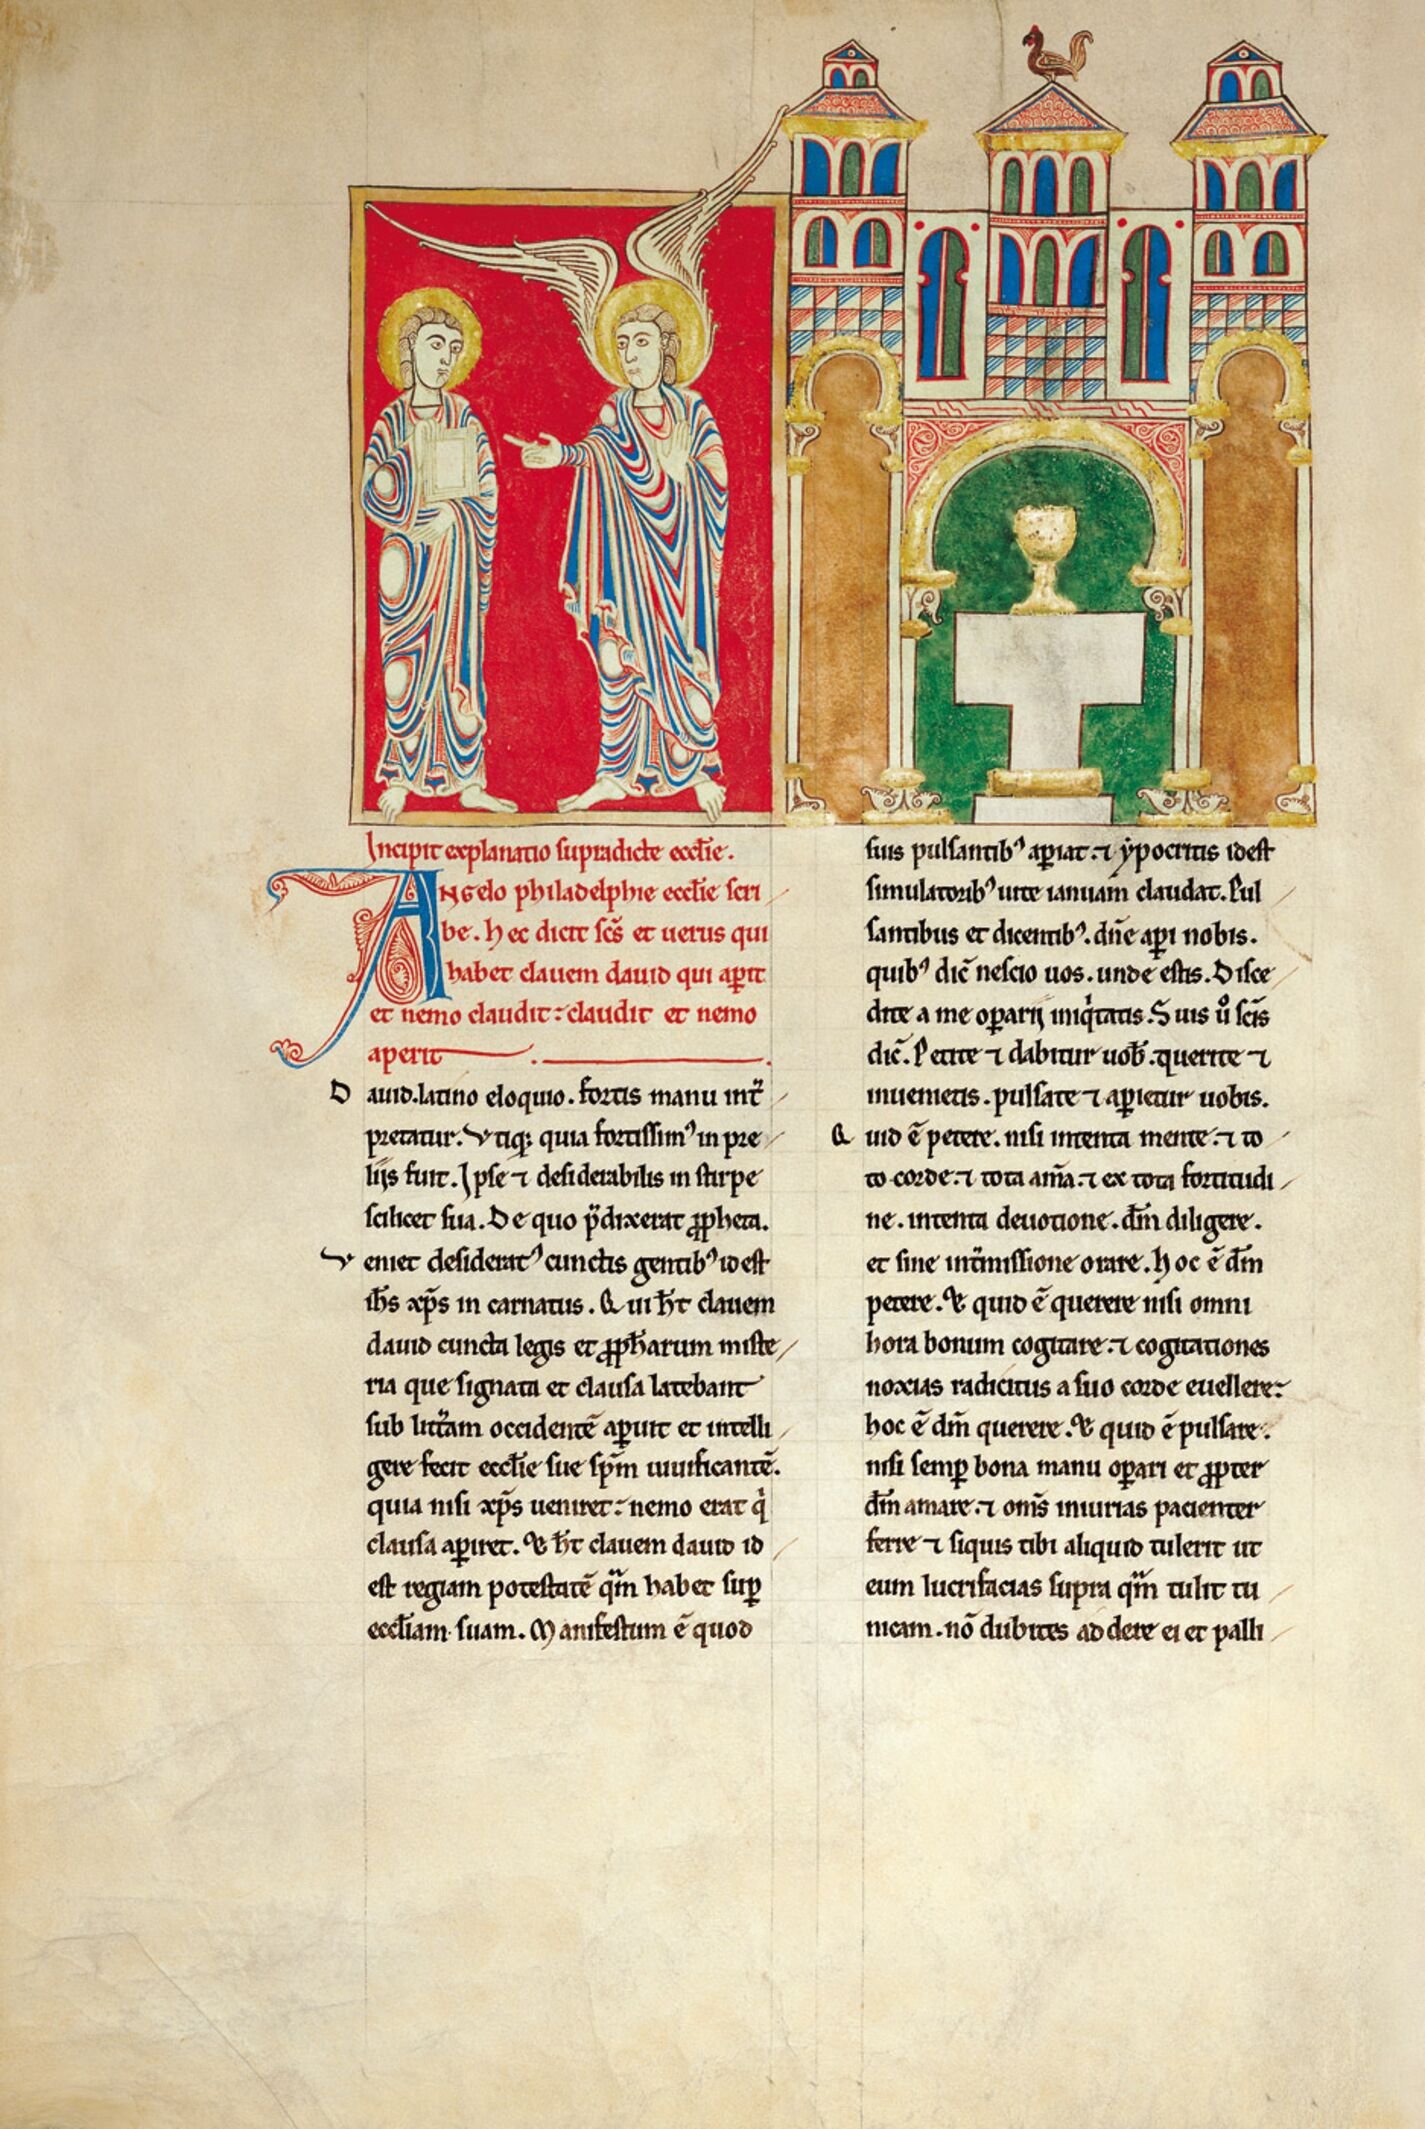 Incipit explanatio supradicte eccl̄ie.
Angelo philadelphie eccl̄ie scri
be. Hec dicit sc̄s et uerus qui
habet clauem dauid qui ap̲it
et nemo claudit: claudit et nemo
aperit
Dauid. latino eloquio. fortis manu int̄
pretatur. Vtiq; quia fortissim᾽ in pre
lijs fuit. Ipse ⁊ desiderabilis in stirpe
scilicet sua. De quo p̄dixerat ꝓpheta.
Veniet desiderat᾽ cunctis gentib᾽ id est
ih̄s xp̄s in carnatus. Qui h̄t clauem
dauid cuncta legis et ꝓph̄arum miste
ria que signata et clausa latebant
sub litt̄am occidentē ap̲uit et intelli
gere fecit eccl̄ie sue sp̄m uiuificantē.
quia nisi xp̄s ueniret: nemo erat q̇
clausa ap̲iret. Et h̄t clauem dauid id
est regiam potestatē qm̄ habet sup̲
eccl̄iam suam. Manifestum ē quod
suis pulsantib᾽ ap̲iat. ⁊ ẏpocritis id est
simulatorib᾽ uite ianuam claudat. Pul
santibus et dicentib᾽. dn̄e ap̲i nobis.
quib᾽ dic̄ nescio uos. unde estis. Disce
dite a me op̲arij iniq̇tatis. Suis ů sc̄is
dic̄. Petite ⁊ dabitur uob̄. querite ⁊
inuenietis. pulsate ⁊ ap̲ietur uobis.
Quid ē petere. nisi intenta mente. ⁊ to
to corde. ⁊ tota am̄a. ⁊ ex tota fortitudi
ne. intenta deuotione. dm̄ diligere.
et sine int̄missione orare. Hoc ē dm̄
petere. Et quid ē querere nisi omni
hora bonum cogitare. ⁊ cogitationes
noxias radicitus a suo corde euellere:
hoc ē dm̄ querere. Et quid ē pulsare.
nisi semp̲ bona manu op̲ari et ꝓpter
dm̄ amare. ⁊ om̄s iniurias pacienter
ferre ⁊ siquis tibi aliquid tulerit ut
eum lucrifacias supra qm̄ tulit tu
nicam. nō dubites ad dere ei et palli